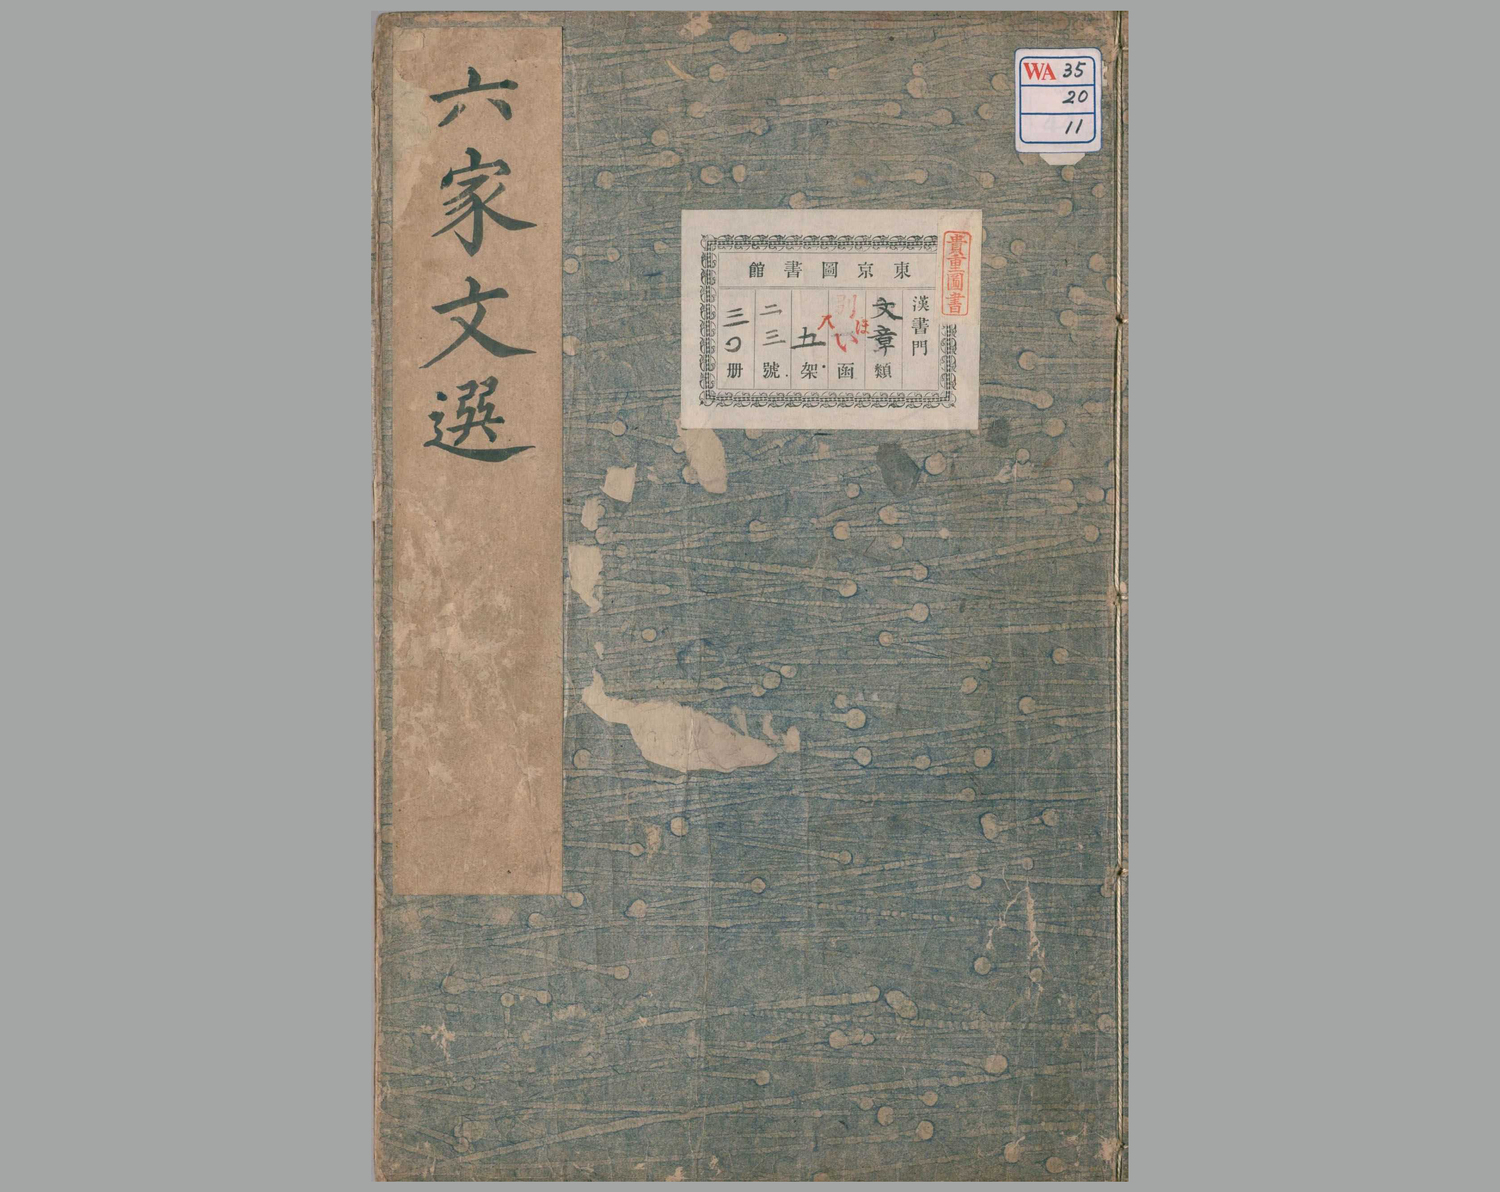 六家文選
WA 35
20
11
貴重圖書
東京圖書館
漢書門
文章類
ほ
い函
五架
二三號
三〇册